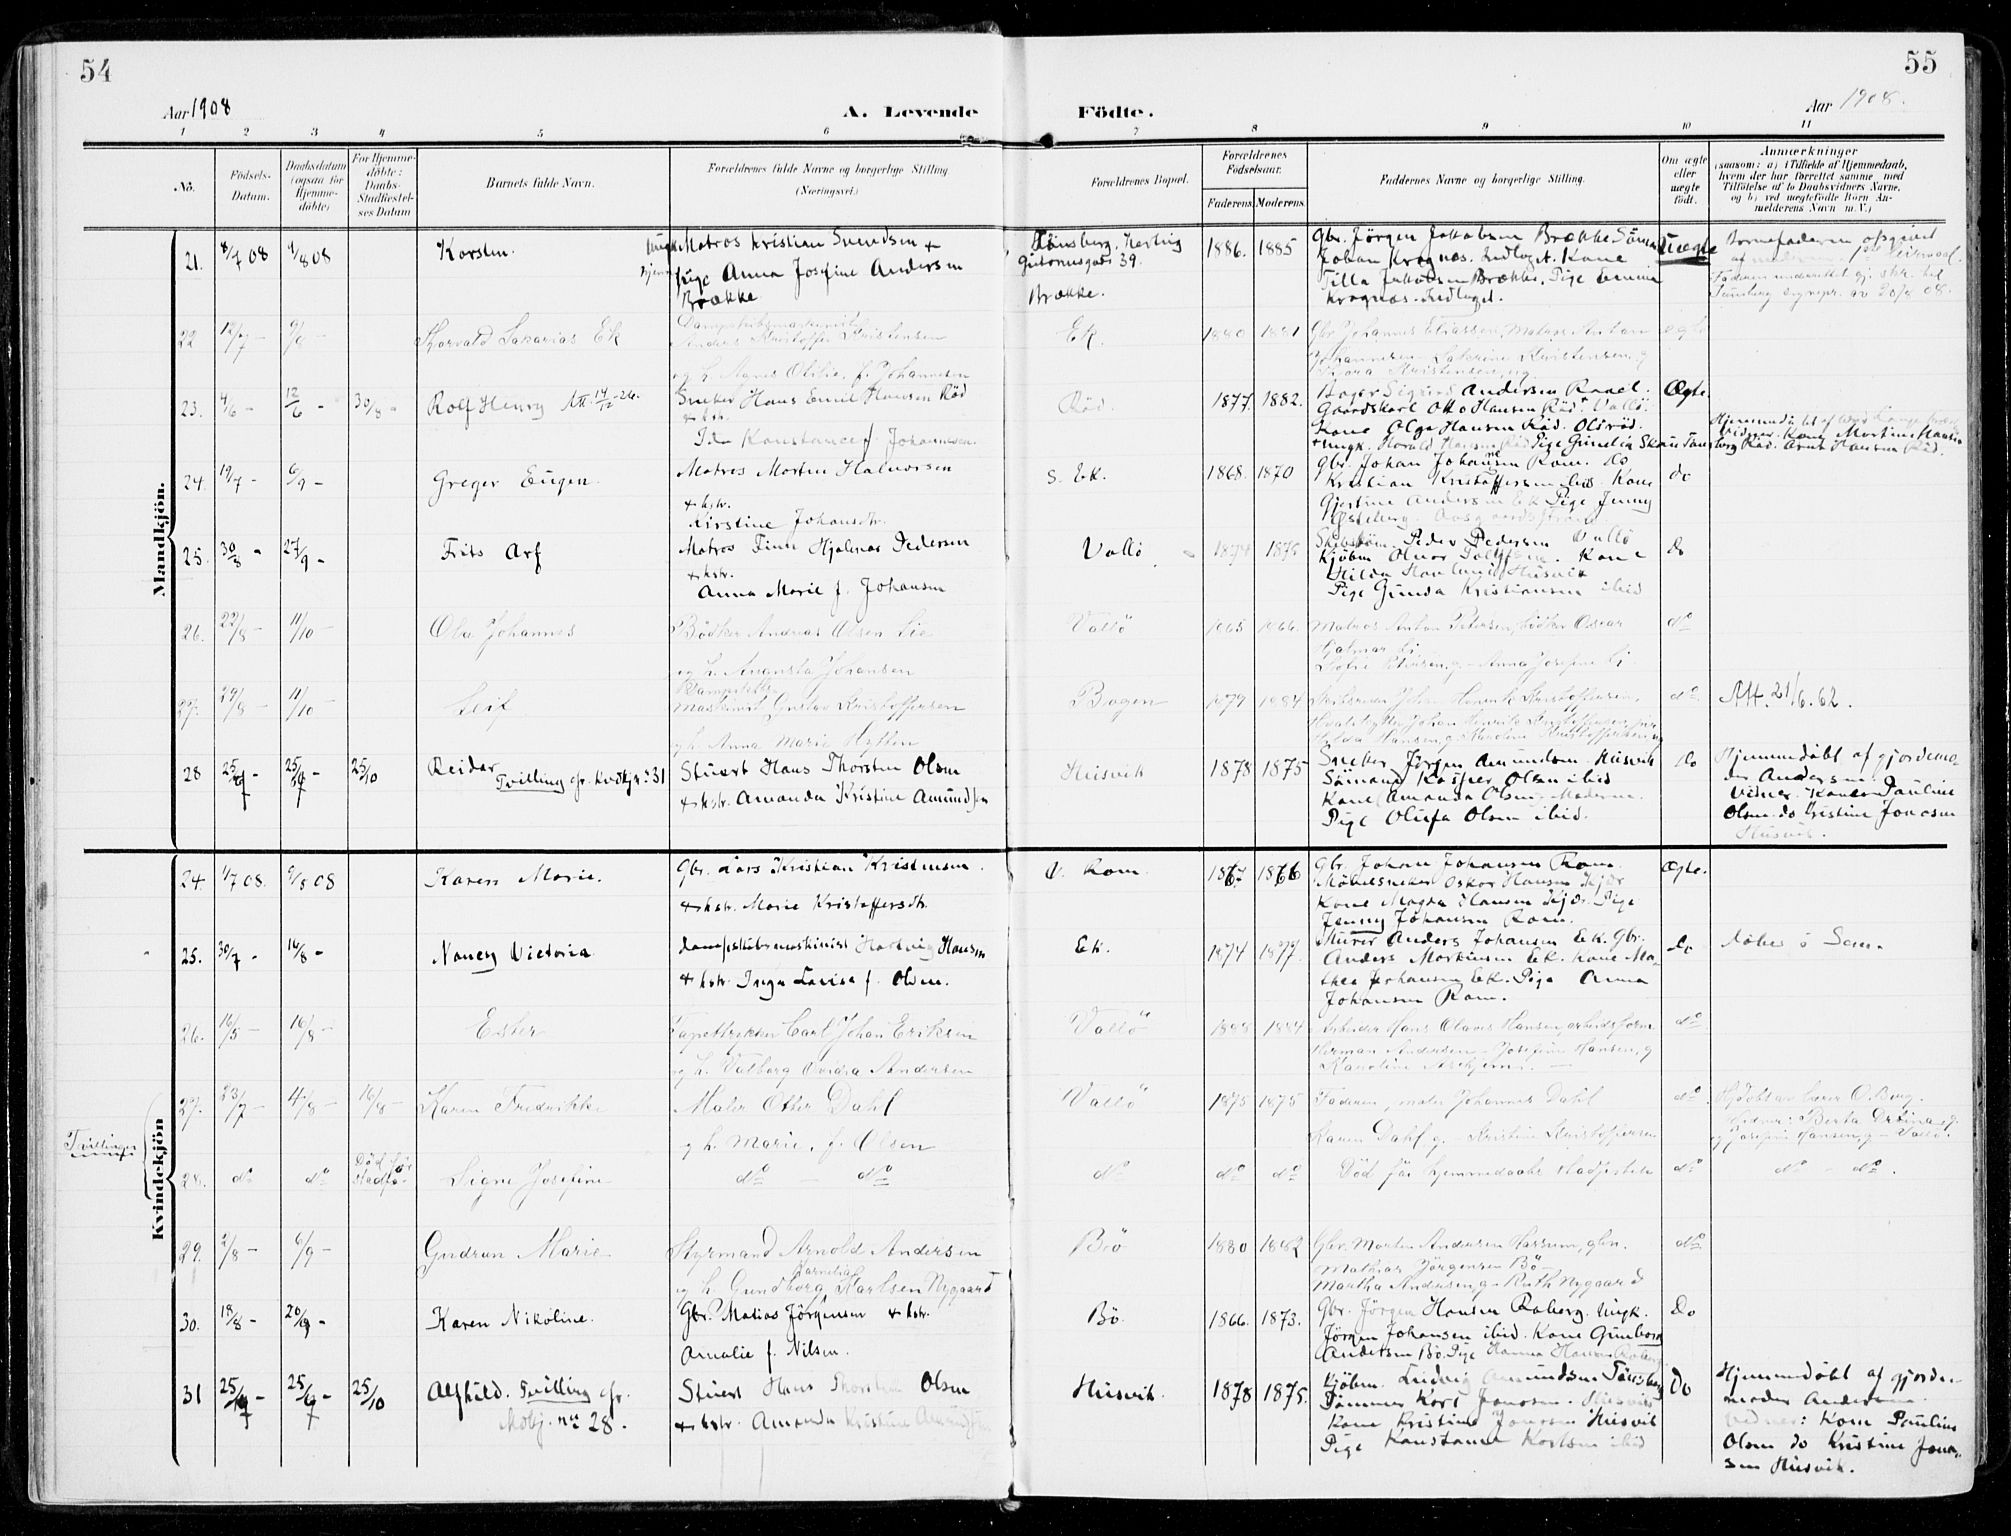 54
55
Aar 1908
A. Levende
Födte.
Aar 1908.
1 2 3 4 5 6 7 8 9 10 11
No.
Födsels-Datum.
Daabsdatum (ogsaa for Hjemme-döbte)
For Hjemme-döbte: Daabs-Stadfæstel-ses Datum
Barnets fulde Navn.
Forældrenes fulde Navne og borgerlige Stilling.
(Næringsvei.)
Forældrenes Bopæl.
Forældrenes Födselsaar.
Faderens. Moderens.
Faddernes Navne og borgerlige Stilling.
Om ægte eller uægte födt.
Anmærkninger
(saasom: a) i Tilfælde af Hjemmedaab,
hvem der har forrettet samme, med
Tilföielse af to Daabsvidners Navne,
og b) ved uægtefödte Börn An-
melderens Navn m.V.)
Mandkjön.
21. 8/7 08 9/8 08 Karsten. Ungk. Matros Kristian Svendsen +
Pige Anna Josefine Andersen
Brække
Tönsberg.
39.
Brække.
1886. 1885
Gbr. Jörgen Jakobsen Brække
Johan Kragnæs. Kone
Tilla Jakobsen Brække. Pige
Kragnæs.
Uægte
Barnefaderen opgivet
af moderen
22 12/7 - 9/8 - Thorvald Sakarias Ek
Dampskibsmaskinist
Anders Kristoffer Kristensen
og h. Agnes Otilie, f. Johannesen
Ek.
1880 1881
Gbr. Johannes Eliassen, Matros Anton
Johannesen -
Thora Kristensen, ug
egte
23. 4/6 - 12/6 - 30/8 - Rolf Henry Att. 14/12-26.
Snekker Hans Emil Hansen Röd
+ hstr.
Ida Konstance f. Johannesen.
Röd.
1877. 1882.
Bager Sigurd Andersen Raael.
Gaardskarl Otto Hansen Röd, Vallö.
Kone Olga Hansen Röd. Olsröd.
+ ungk. Harald Hansen Röd Pige
Ægte.
Hjemmedöbt af
Vidner. Kone Martine Hansen
Röd. Arnt Hansen Röd.
24. 19/7 - 6/9 - Greger Eugen.
Matros Morten Halvorsen
+ hstr.
Kirstine Johansdtr.
S. Ek.
1868. 1870
Gbr. Johan Johannesen Ram. Do
Kristian Kristoffersen ibid. Kone
Gjertine Andersen Ek Pige Jenny
do
25. 30/8 - 27/9 - Frits Arf
Matros Finn Hjalmar Pedersen
+ hstr.
Anna Marie f. Johansen
Vallö
1874 1875
Peder Pedersen Vallö
Kjöbm. Kone
Hilda Husvik
Pige Gunda Kristiansen ibid
do
26. 22/8 - 11/10 - Ola Johannes
Bödker Andreas Olsen Lie
og h. Anansta Johansen
Vallö
1865 1866.
Matros Anton Petersen, Bödker Oscar
Hjalmar Li
Sofie Petersen, g. - Anna Josefine Li
do
27. 29/8 - 11/10 - Leif
Dampskibs
Maskinist Gustav Kristoffersen
og h. Anna Marie Hytten
Bogen
1879 1884
do
Att. 21/6. 62.
28 25/7 - 25/9 - 25/10 Reidar
Tvilling cfr. Kvdkj. no 31
Stuert Hans Thorsten Olsen
+ hstr. Amanda Kristine Amundsen
Husvik
1878 1875
Sneker Jörgen Amundsen Husvik
Sömand Kasper Olsen ibid
Kone Amanda Olsen, Moderen.
Pige Olufa Olsen ibid.
Do
Hjemmedöbt af gjordemo-
der Andersen
Vidner. Konen Pauline
Olsen. do Kristine Jonasen
Husvik.
Kvindekjön
24. 1/7 08. 9/8 08 Karen Marie.
Gbr. Lars Kristian Kristensen.
+ hstr. Marie Kristoffersdtr.
V. Ram.
1867 1866
Gbr. Johan Johansen Ram.
Möbelsneker Oskar Hansen Kjær
Kone Magda Hansen Kjær. Pige
Jenny Johansen Ram.
Ægte.
25. 30/7 - 16/8 - Nancy Victoria
Dampskibsmaskinist Hartvig Hansen
+ hstr. Inga Lovise f. Olsen.
Ek.
1874 1877.
Murer Anders Johansen Ek. Gbr.
Anders Martinsen Ek. Kone Ma-
thea Johansen Ek. Pige Anna
Johansen Ram.
Do
Döbt i Sem.
26. 16/5 - 16/8 - Ester
Tapettrykker Carl Johan Eriksen
og h. Valborg Andersen
Vallö
1884
Arbeider Hans Olaves Hansen, arbeidsform
Herman Andersen - Josefine Hansen, g
Karoline
do
Tvillinger
27. 23/7 - 4/8 - 16/8 - Karen Fredrikke
Maler Otter Dahl
og h. Marie, f. Olsen
Vallö
1875 1875
Faderen, maler Johannes Dahl
Karen Dahl g. - Kristine Kristoffersen
do
Hj.döbt av lærer O. Berg.
Vidner: Berta
og Josefine Hansen, g - Vallö.
28. do do Död för stadfæ- Signe Josefine
do - do
do
do do
Död för hjemmedaabs stadfestelse
do
do - do.
29. 2/8 - 6/9 - Gudrun Marie
Styrmand Arnold Andersen
og h. Gundborg Karnelia Karlsen Nygaard
Bö
1880 1882
Gbr. Morten Andersen gbr.
Mathias Jörgensen Bö -
Martha Andersen, g - Ruth Nygaard
do
30. 18/8 - 20/9 - Karen Nikoline.
Gbr. Matias Jörgensen + hstr.
Amalie f. Nilsen.
Bö.
1866. 1873.
Gbr. Jörgen Hansen Raberg. Ungk.
Jörgen Johansen ibid. Kone Gunborg
Andersen Bö. Pige Hanna Hansen Raberg
Do
31 25/7 - 25/9 - 25/10 Alfhild. Tvilling cfr.
Mdkj. no 28.
Stuert Hans Thorsten Olsen
+ hstr. Amanda Kristine Amundsen
Husvik.
1878 1875.
Kjöbm. Ludvig Amundsen Tönsberg
Tömmer Karl Jonasen. Husvik
Kone Kristine Jonasen Husvik
Pige Konstance Karlsen ibid
Do
Hjemmedöbt af gjorde-
moder Andersen.
Vidner: Kone Pauline
Olsen do Kristine Jona-
sen Husvik.